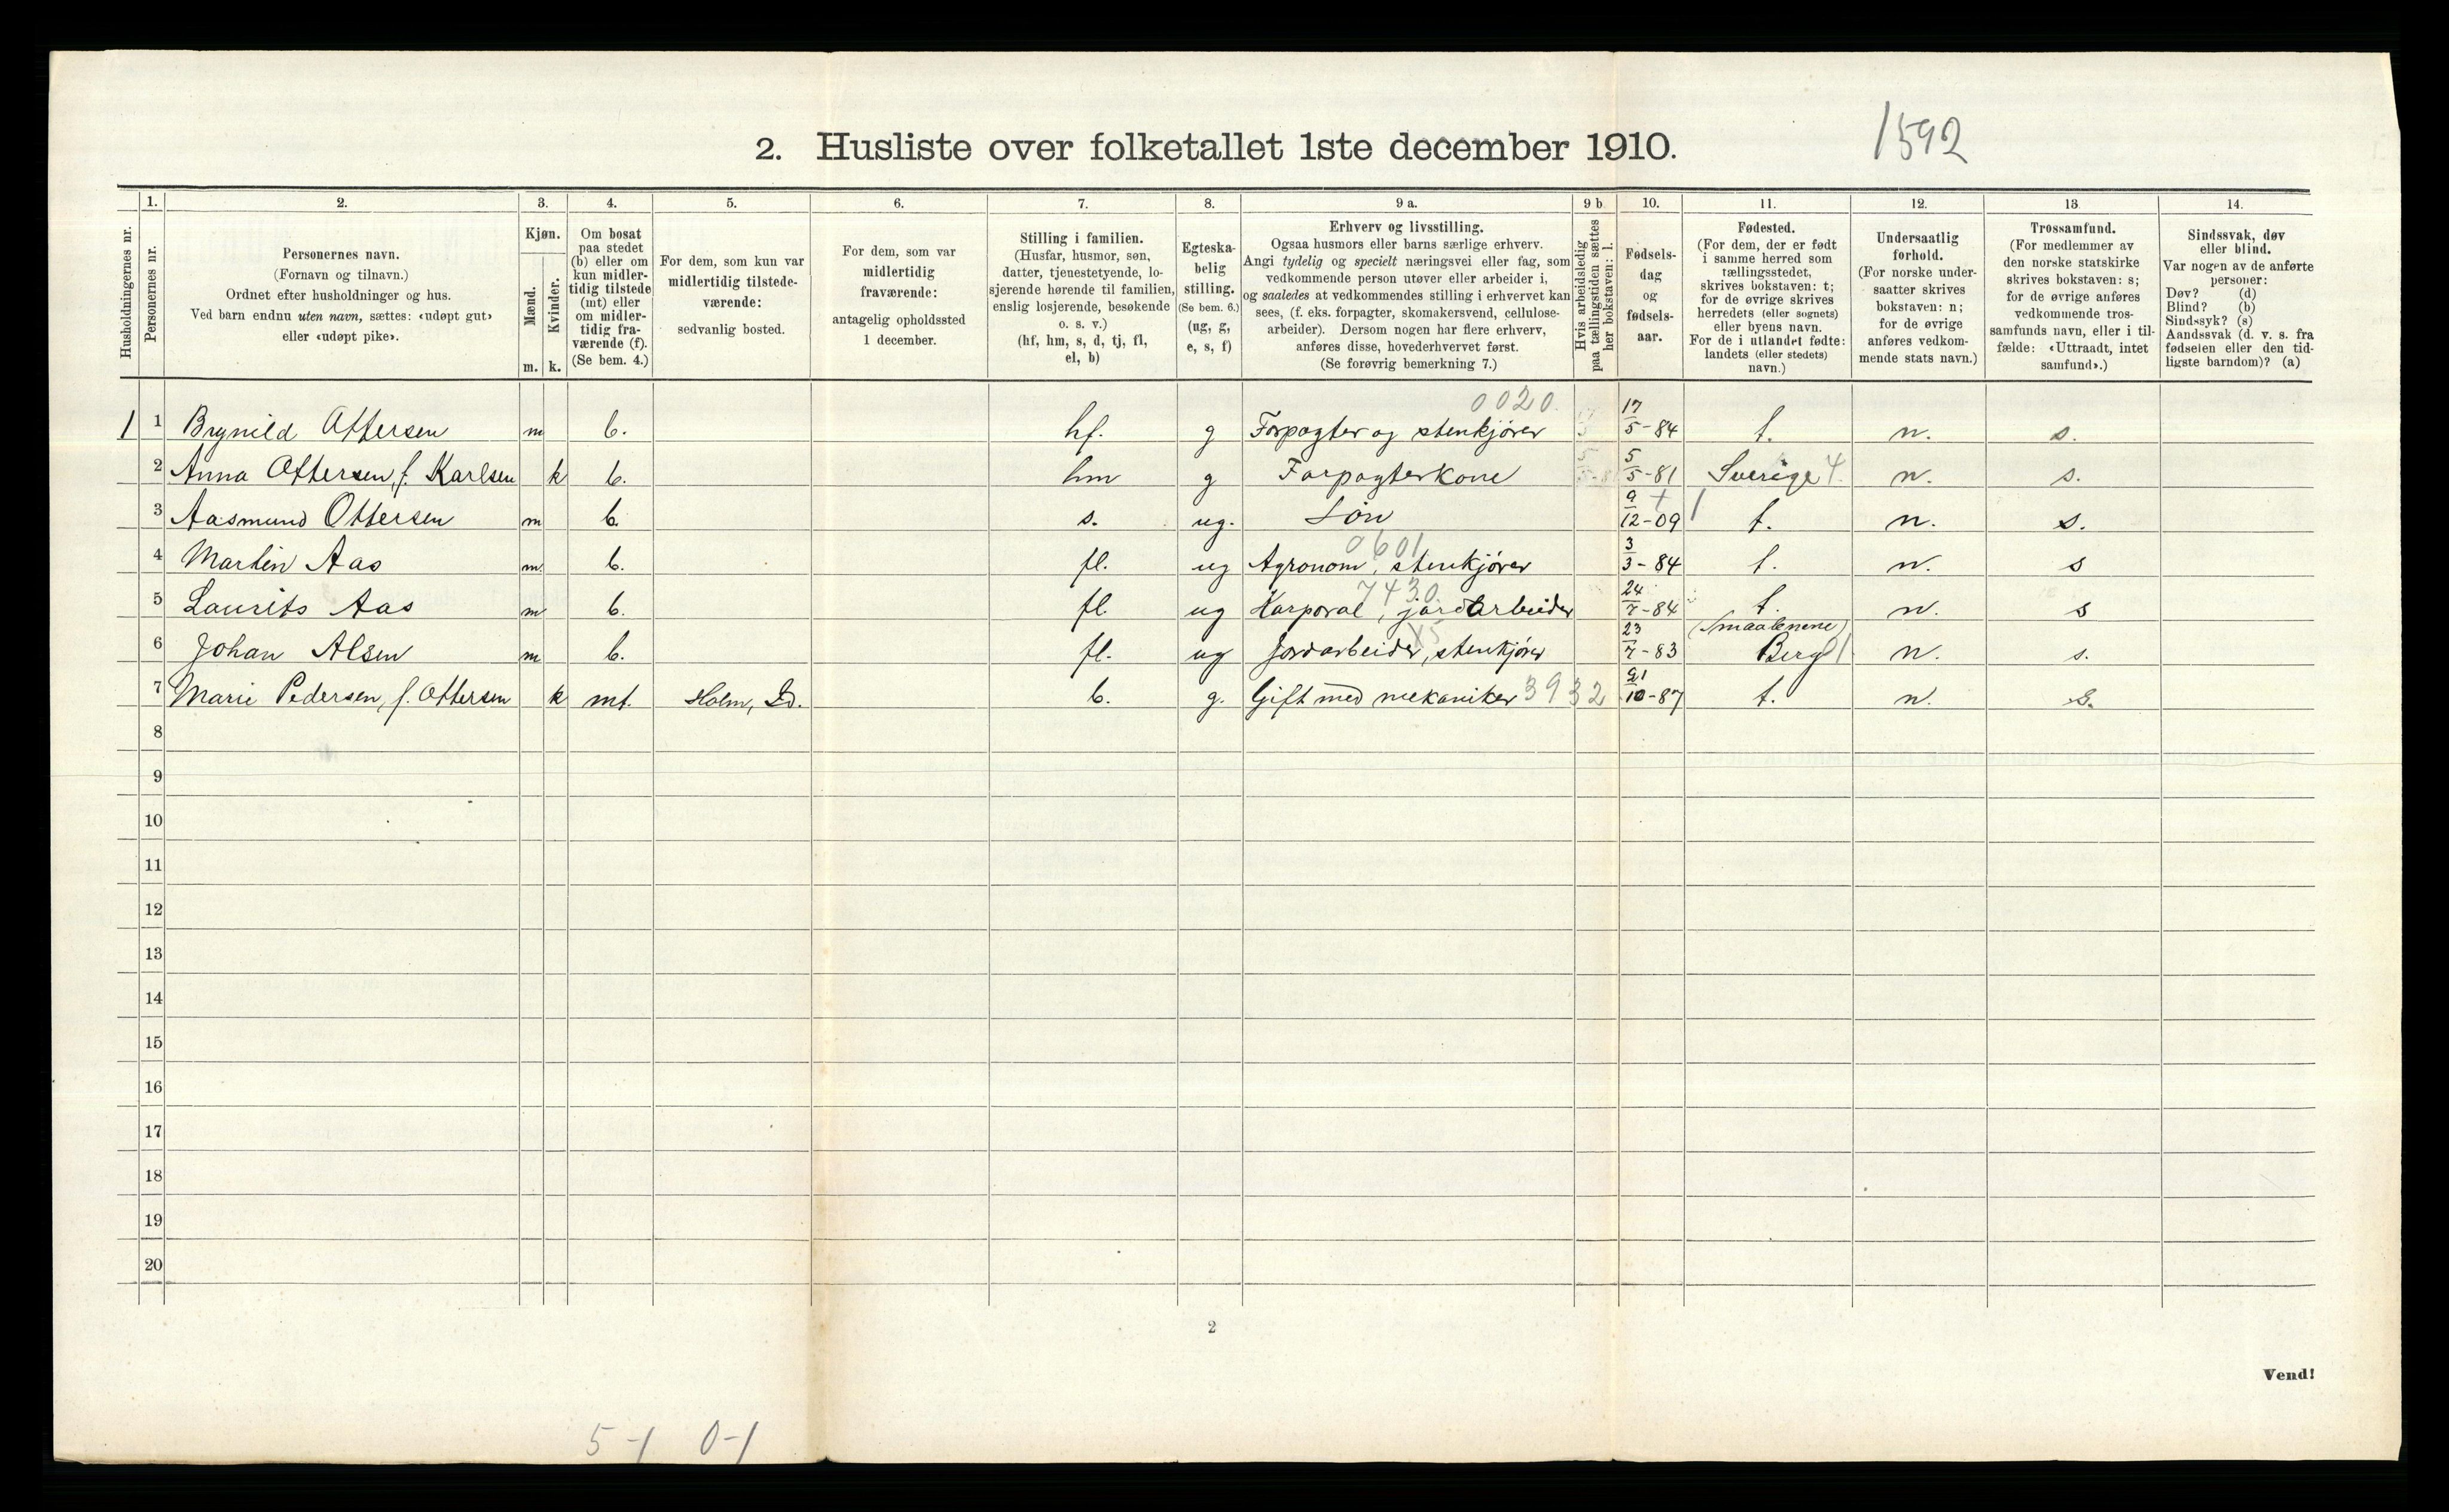 2. Husliste over folketallet 1ste december 1910.
1592
Husholdningernes nr.
1.
Personernes nr.
2.
Personernes navn.
(Fornavn og tilnavn.)
Ordnet efter husholdninger og hus.
Ved barn endnu uten navn, sættes: «udøpt gut»
eller «udøpt pike».
3.
Kjøn.
Mænd.
Kvinder.
m.
k.
4.
Om bosat
paa stedet
(b) eller om
kun midler-
tidig tilstede
(mt) eller
om midler-
tidig fra-
værende (f).
(Se bem. 4.)
5.
For dem, som kun var
midlertidig tilstede-
værende:
sedvanlig bosted.
6.
For dem, som var
midlertidig
fraværende:
antagelig opholdssted
1 december.
7.
Stilling i familien.
(Husfar, husmor, søn,
datter, tjenestetyende, lo-
sjerende hørende til familien,
enslig losjerende, besøkende
o. s. v.)
(hf, hm, s, d, tj, fl,
el, b)
8.
Egteska-
belig
stilling.
(Se bem. 6.)
(ug, g,
e, s, f)
9 a.
Erhverv og livsstilling.
Ogsaa husmors eller barns særlige erhverv.
Angi tydelig og specielt næringsvei eller fag, som
vedkommende person utøver eller arbeider i,
og saaledes at vedkommendes stilling i erhvervet kan
sees, (f. eks. forpagter, skomakersvend, cellulose-
arbeider). Dersom nogen har flere erhverv,
anføres disse, hovederhvervet først.
(Se forøvrig bemerkning 7.)
9 b.
Hvis arbeidsledig
paa tællingstiden sættes
her bokstaven: l.
10.
Fødsels-
dag
og
fødsels-
aar.
11.
Fødested.
(For dem, der er født
i samme herred som
tællingsstedet,
skrives bokstaven: t;
for de øvrige skrives
herredets (eller sognets)
eller byens navn.
For de i utlandet fødte:
landets (eller stedets)
navn.)
12.
Undersaatlig
forhold.
(For norske under-
saatter skrives
bokstaven: n;
for de øvrige
anføres vedkom-
mende stats navn.)
13.
Trossamfund.
(For medlemmer av
den norske statskirke
skrives bokstaven: s;
for de øvrige anføres
vedkommende tros-
samfunds navn, eller i til-
fælde: «Uttraadt, intet
samfund».)
14.
Sindssvak, døv
eller blind.
Var nogen av de anførte
personer:
Døv? (d)
Blind? (b)
Sindssyk? (s)
Aandssvak (d. v. s. fra
fødselen eller den tid-
ligste barndom)? (a)
0020.
1 1 Brynild Ottersen m b. hf. g Forpagter og stenkjører 17/5-84 t. n. s.
2 Anna Ottersen, f. Karlsen k b. hm g Forpagterkone 5/5-81 Sverige 4. n. s.
3 Aasmund Ottersen m b. s. ug. Søn 9/12-09 1 t. n. s.
0601
4 Martin Aas m. b. fl. ug Agronom, stenkjører 3/3-84 t. n. s
7430
5 Laurits Aas m b. fl. ug Korporal, jordarbeider 24/7-84 t. n. s
(Smaalenene)
6 Johan Alsen m b. fl. ug Jordarbeider, stenkjører 23/7-83 Berg 01 n. s.
7 Marie Pedersen, f. Ottersen k mt. Holm, Id. b. g. Gift med mekaniker 3932 21/10-87 t. n. s.
8
9
10
11
12
13
14
15
16
17
18
19
20
2
Vend!
5-1 0-1